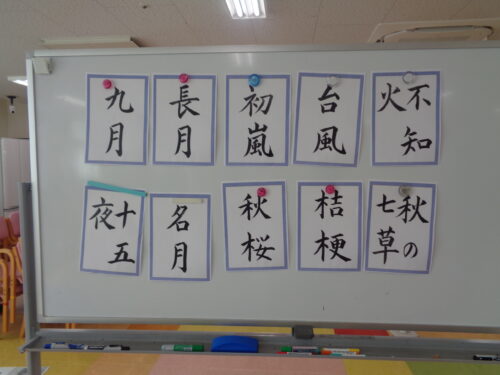 九月
長月
初嵐
台風
不知火
十五夜
名月
秋桜
桔梗
秋の七草